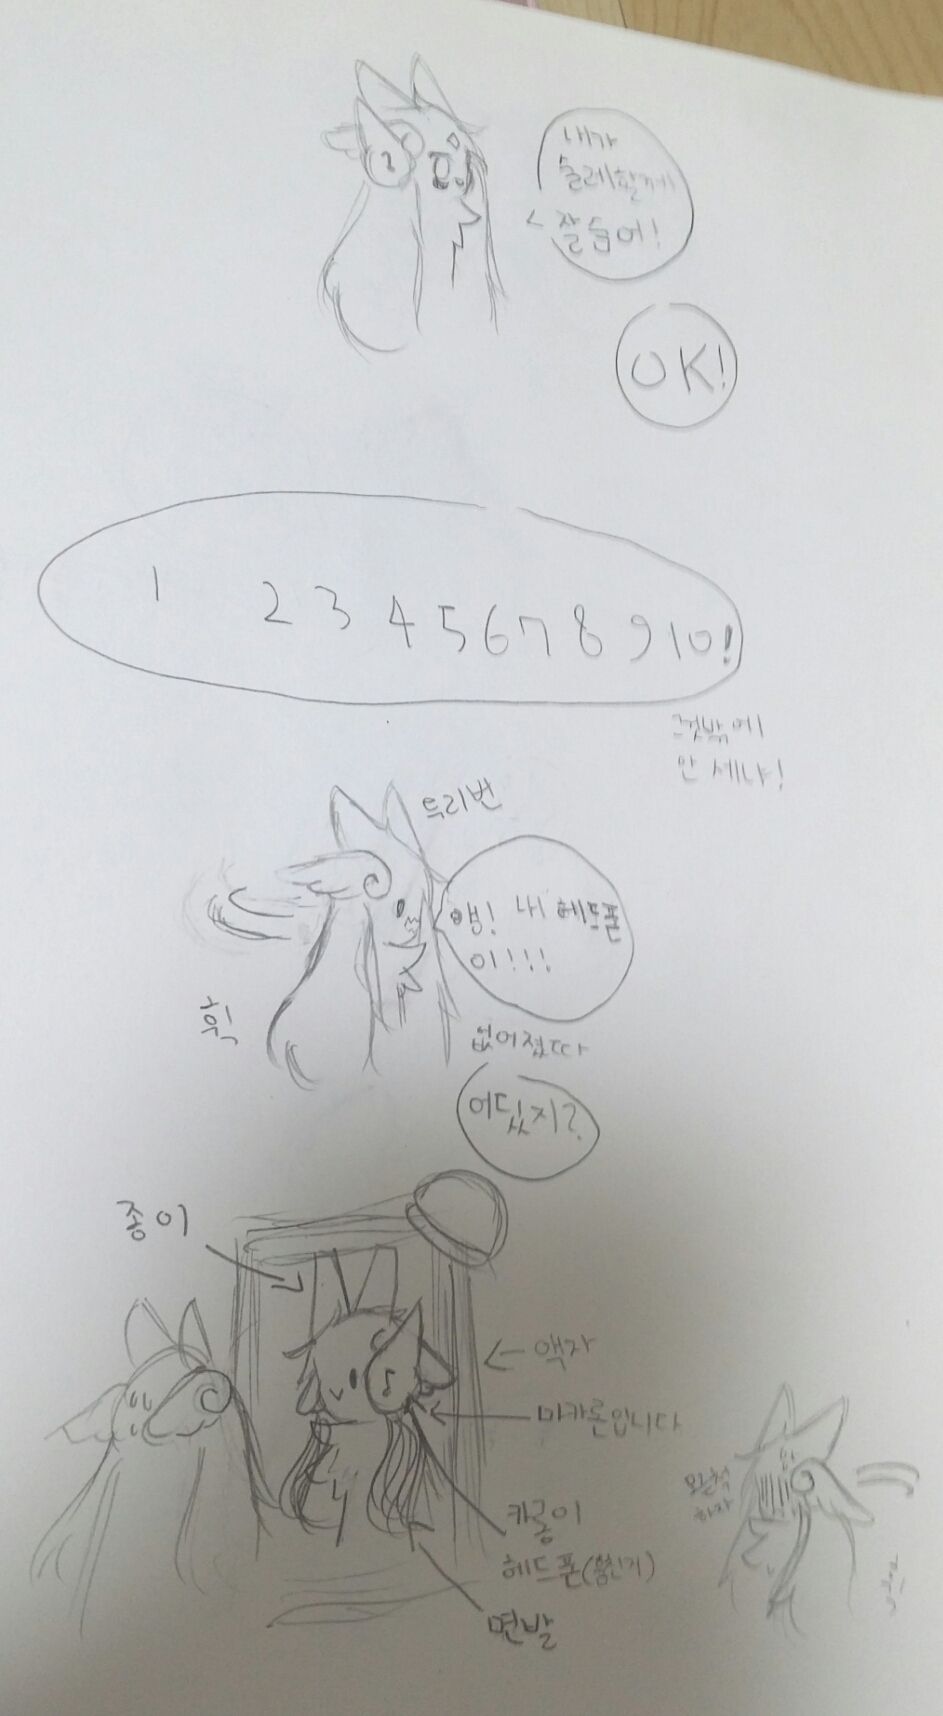 내가
술레할게
잘숨어!
OK!
1 2 3 4 5 6 7 8 9 10!
그것밖에
안 세냐!
두리번
앵! 내 헤드폰
이!!!
휙
없어졌따
어딨지?
종이
액자
마카롱입니다
카롱이
헤드폰(훔친거)
면발
모른척
하자